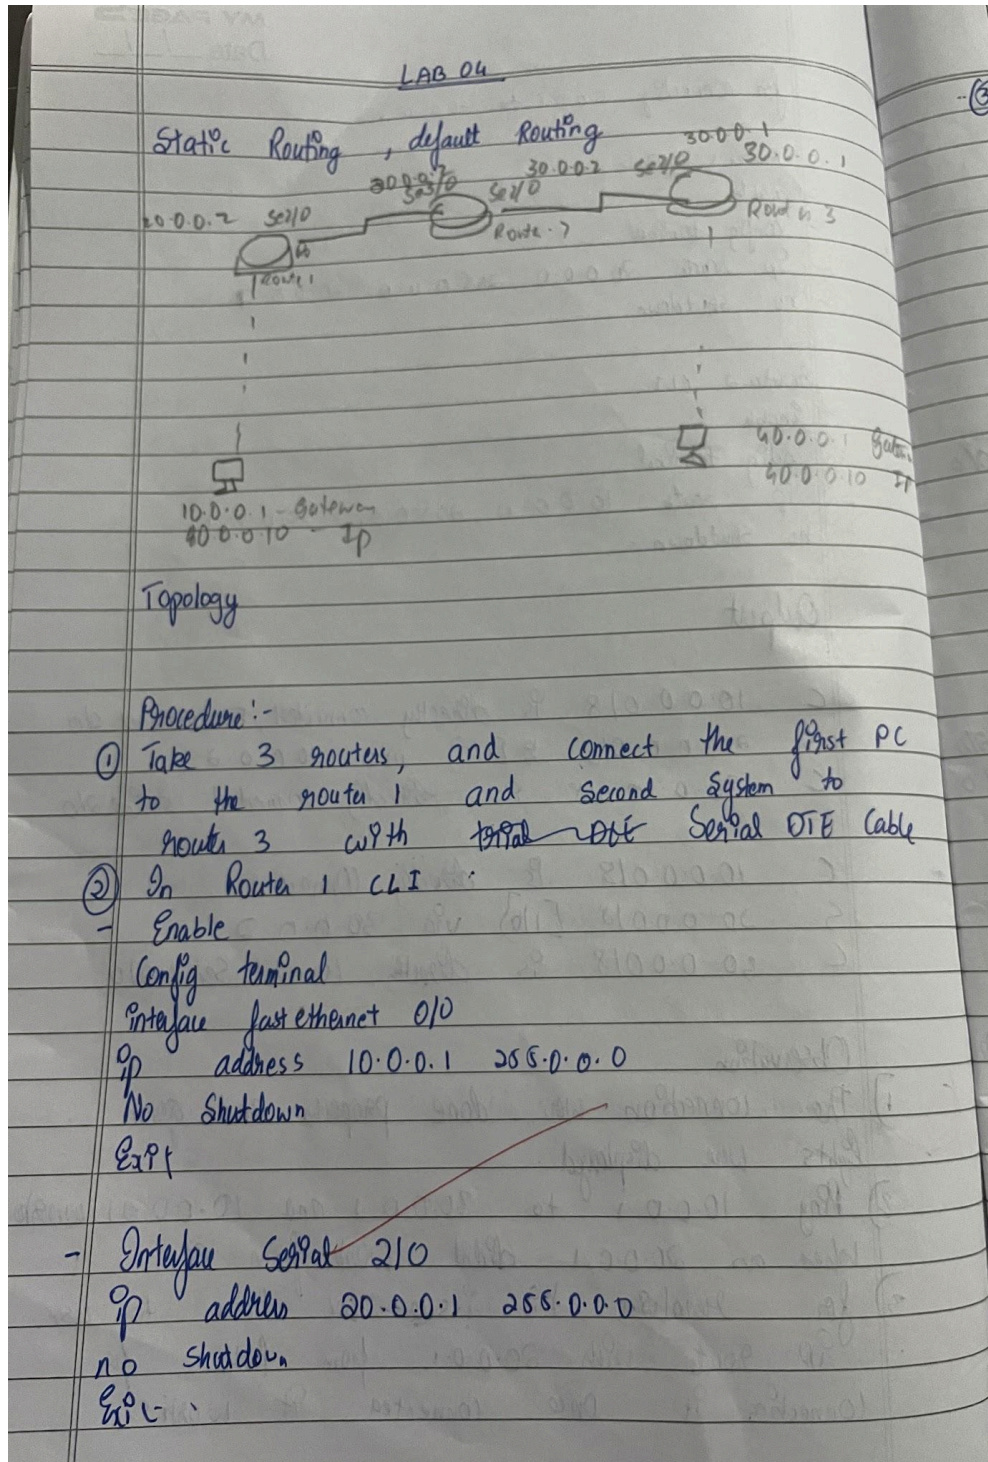 LAB 04
Static Routing , default Routing
30.0.0.1
30.0.0.1
30.0.0.2 Se2/0
Se3/0 Se2/0
20.0.0.2 Se2/0
Route 2
Route 1
40.0.0.1
40.0.0.10 Ip
10.0.0.1 - Gateway
0.0.10 - Ip
Topology
Procedure :-
① Take 3 routers, and connect the first PC
to the router 1 and second system to
router 3 with Serial DTE Cable
② In Router 1 CLI :
- Enable
Config terminal
interface fast ethernet 0/0
ip address 10.0.0.1 255.0.0.0
No Shutdown
Exit
- Interface Serial 2/0
ip address 20.0.0.1 255.0.0.0
no shutdown
Exit